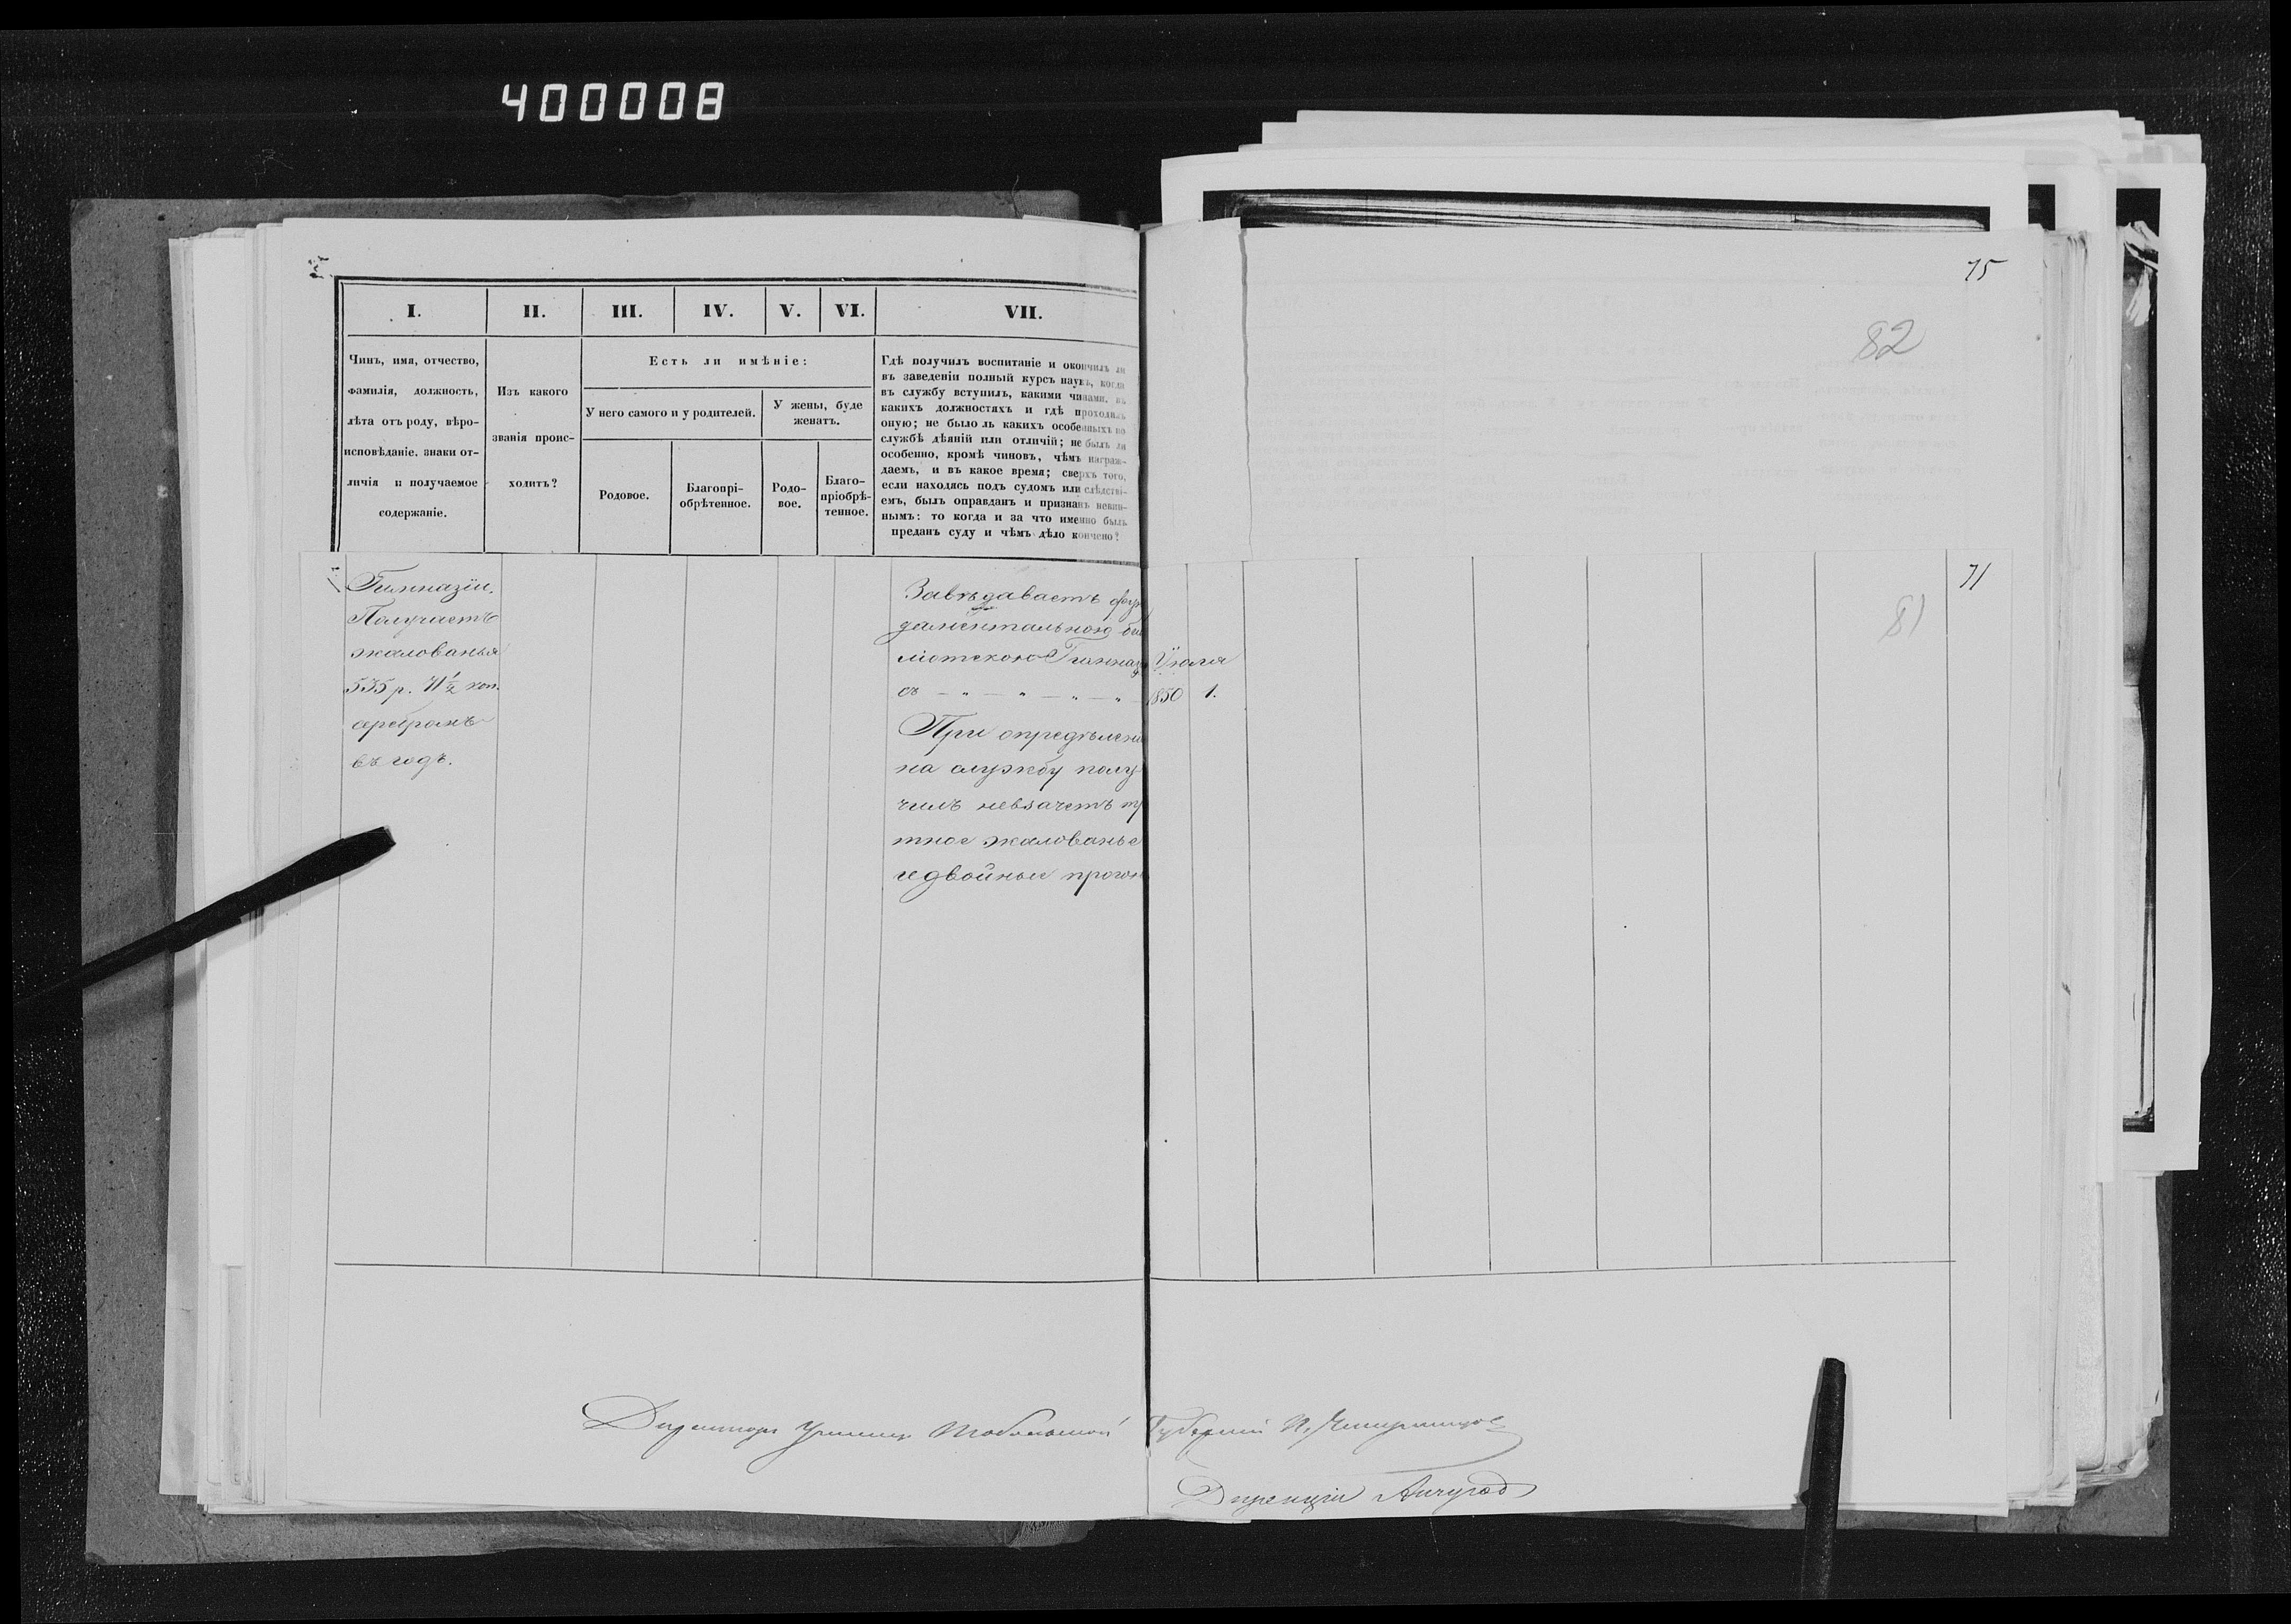 400008
75
82
I. II. III. IV. V. VI. VII.
Чинъ, имя, отчество,
фамилія, должность,
лѣта отъ роду, вѣро-
исповѣданіе, знаки от-
личія и получаемое
содержаніе.
Изъ какого
званія проис-
ходитъ?
Есть ли имѣніе:
У него самого и у родителей.
У жены, буде
женатъ.
Родовое.
Благопрі-
обрѣтенное.
Родо-
вое.
Благо-
пріобрѣ-
тенное.
Гдѣ получилъ воспитаніе и окончилъ ли
въ заведеніи полный курсъ наукъ, когда
въ службу вступилъ, какими чинами, въ
какихъ должностяхъ и гдѣ проходилъ
оную; не было ль какихъ особенныхъ по
службѣ дѣяній или отличій; не былъ ли
особенно, кромѣ чиновъ, чѣмъ награж-
даемъ, и въ какое время; сверхъ того,
если находясь подъ судомъ или слѣдстві-
емъ, былъ оправданъ и признанъ невин-
нымъ: то когда и за что именно былъ
преданъ суду и чѣмъ дѣло кончено?
71
81
Гимназіи.
Получаетъ
жалованья
535 р. 71½ коп.
серебромъ
въ годъ.
Завѣдываетъ фун
даментальною биб
ліотекою Гимназ
Іюля
съ — „ — „ — „ — „ — 1850 1.
При опредѣлені
на службу полу
чилъ невзачетъ тр
тное жалованье
и двойные прогон
Директоръ Училищъ Тобольской Губерніи П.
Дирекціи